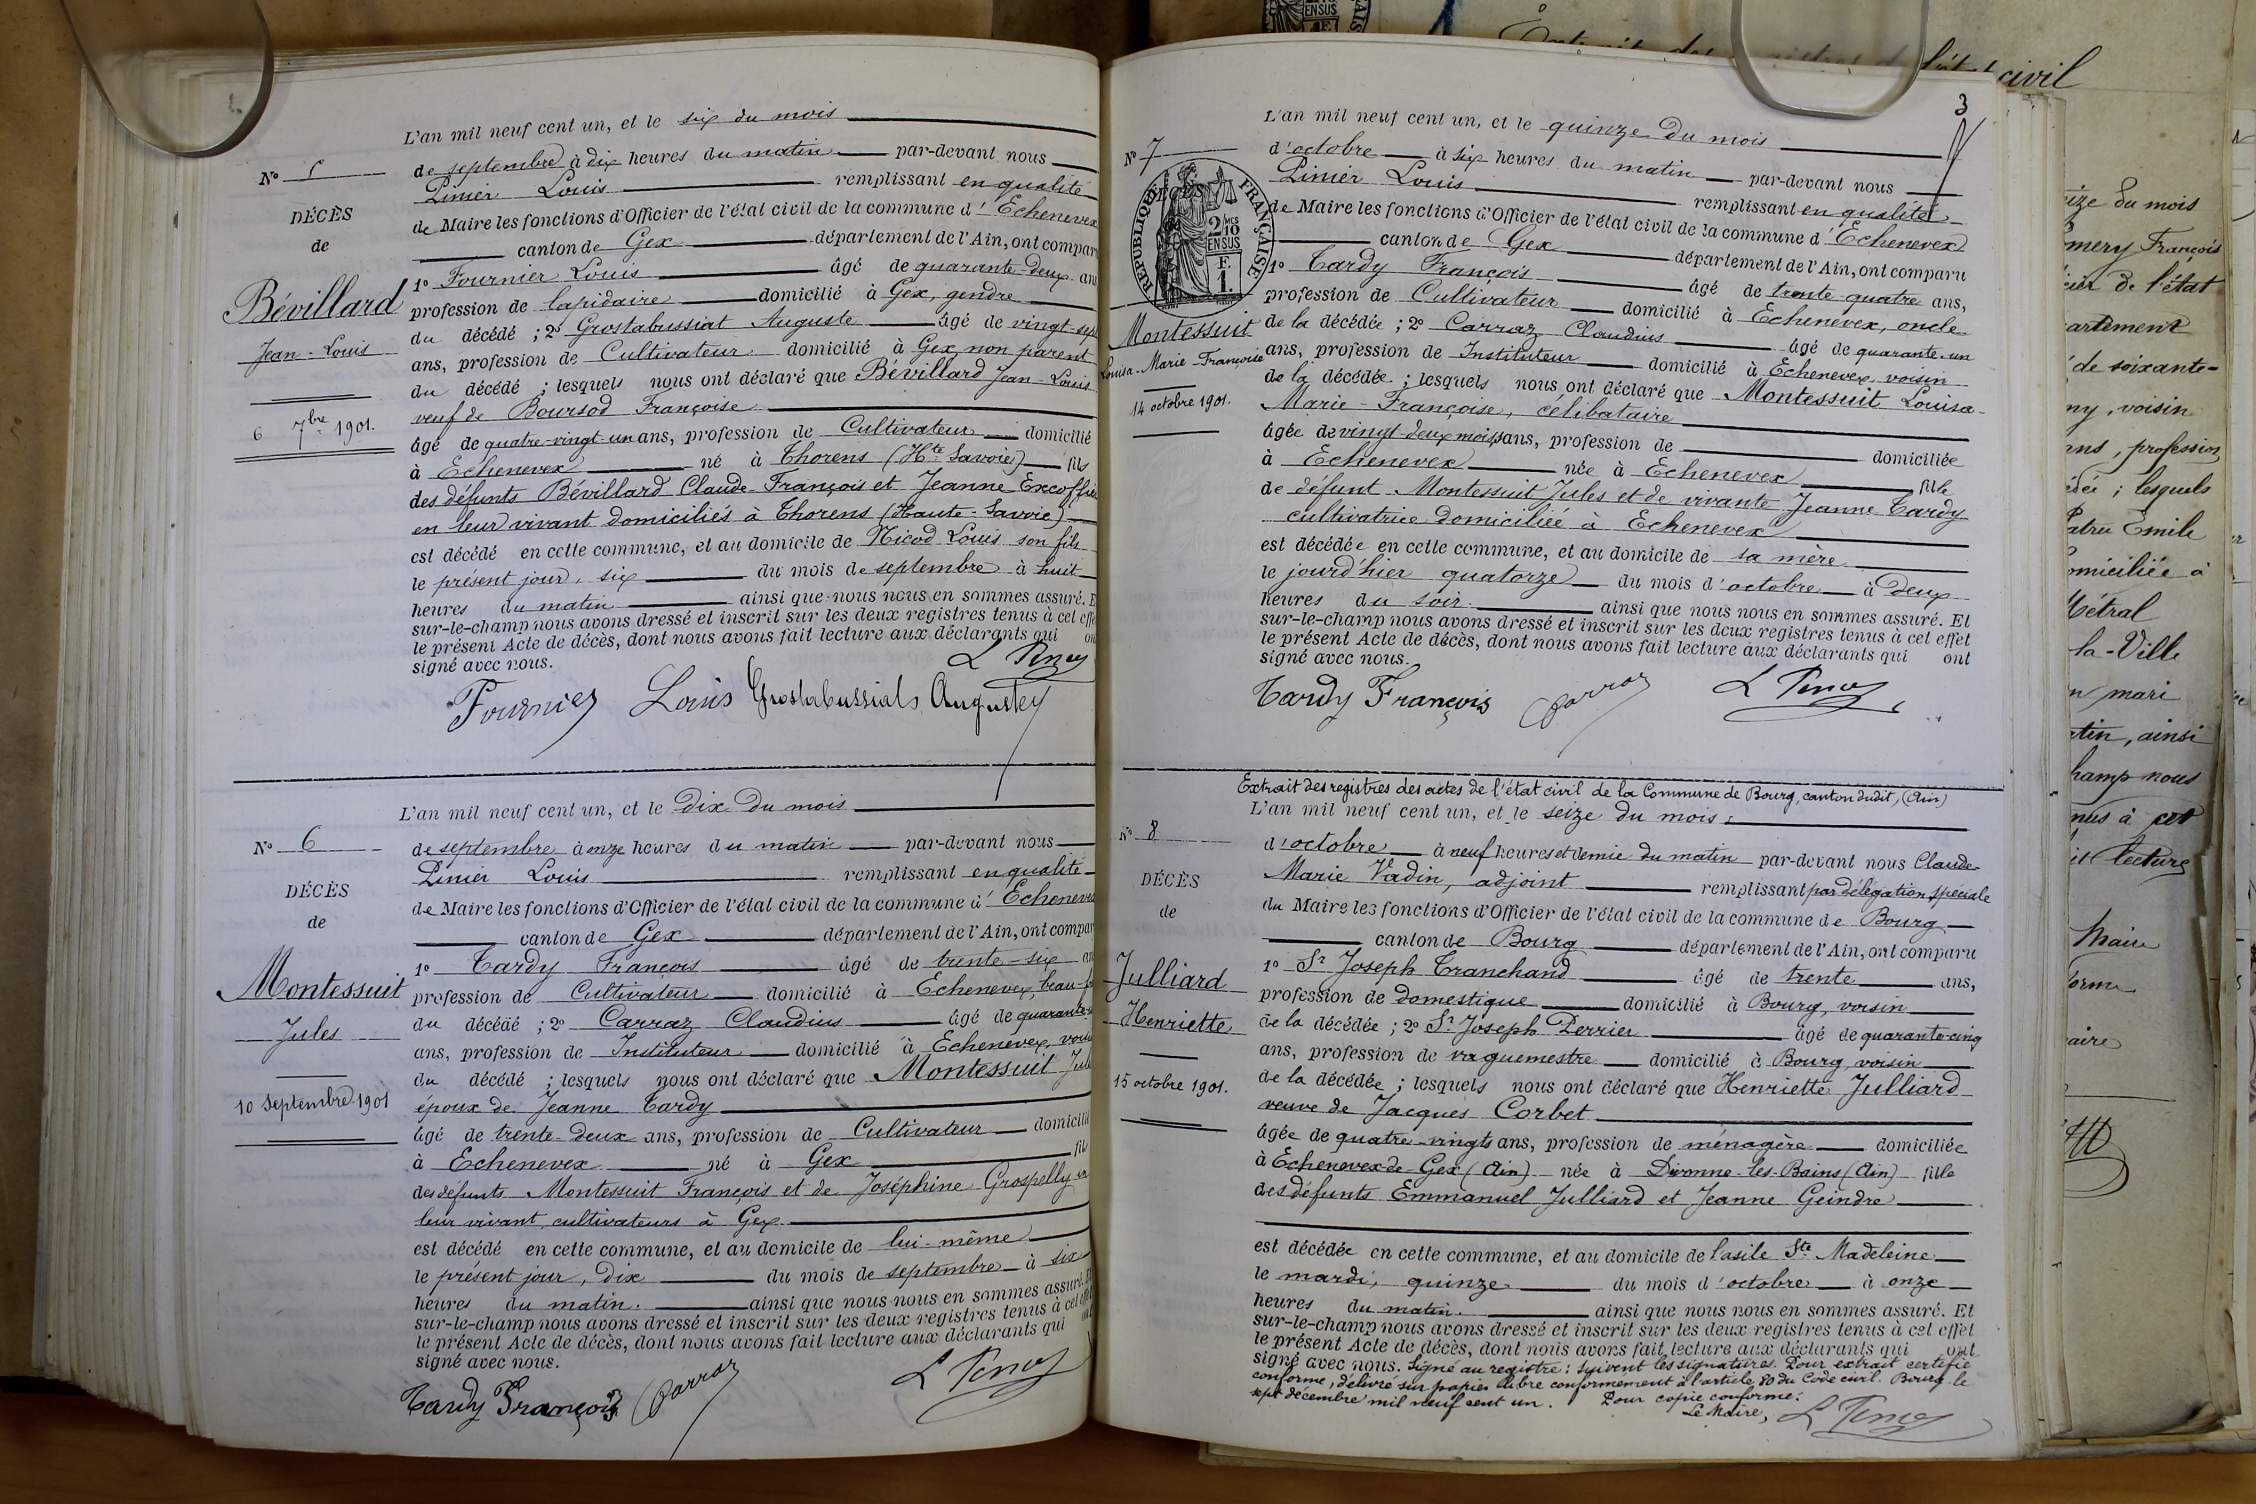 L'an mil neuf cent un, et le six du mois
No 5
de septembre à dix heures du matin par-devant nous
Pinier Louis remplissant en qualité
DÉCÈS
de Maire les fonctions d'Officier de l'état civil de la commune d'Echenevex
de
canton de Gex département de l'Ain, ont compar
1o Fournier Louis âgé de quarante-deux an
Bévillard
profession de lapidaire domicilié à Gex, gendre
du décédé ; 2o Grostabussiat Auguste âgé de vingt-sept
Jean-Louis
ans, profession de Cultivateur domicilié à Gex non parent
du décédé ; lesquels nous ont déclaré que Bévillard Jean-Louis
veuf de Boursod Françoise
6 7bre 1901.
âgé de quatre-vingt-un ans, profession de Cultivateur domicilié
à Echenevex né à Thorens (Hte Savoie) fils
des défunts Bévillard Claude-François et Jeanne Excoffie
en leur vivant domiciliés à Thorens (Haute-Savoie)
est décédé en cette commune, et au domicile de Nicod Louis son fils
le présent jour, six du mois de septembre à huit
heures du matin ainsi que nous nous en sommes assuré. E
sur-le-champ nous avons dressé et inscrit sur les deux registres tenus à cet effe
le présent Acte de décès, dont nous avons fait lecture aux déclarants qui on
signé avec nous.
Fournier Louis Grostabussiats Auguste
L'an mil neuf cent un, et le dix du mois
No 6
de septembre à onze heures du matin par-devant nous
Pinier Louis remplissant en qualité
DÉCÈS
de Maire les fonctions d'Officier de l'état civil de la commune d'Echenevex
de
canton de Gex département de l'Ain, ont compar
1o Tardy François âgé de trente-six an
Montessuit
profession de Cultivateur domicilié à Echenevex, beau-f
du décédé ; 2o Carraz Claudius âgé de quarante-u
Jules
ans, profession de Instituteur domicilié à Echenevex, vois
du décédé ; lesquels nous ont déclaré que Montessuit Jule
10 septembre 1901
époux de Jeanne Tardy
âgé de trente-deux ans, profession de Cultivateur domicilié
à Echenevex né à Gex fils
des défunts Montessuit François et de Joséphine Grospelly en
leur vivant, cultivateurs à Gex
est décédé en cette commune, et au domicile de lui-même
le présent jour, dix du mois de septembre à six
heures du matin. ainsi que nous nous en sommes assuré. Et
sur-le-champ nous avons dressé et inscrit sur les deux registres tenus à cet effet
le présent Acte de décès, dont nous avons fait lecture aux déclarants qui ont
signé avec nous.
Tardy François Carraz
3
L'an mil neuf cent un, et le quinze du mois
No 7
d'octobre à six heures du matin par-devant nous
Pinier Louis remplissant en qualité
RÉPUBLIQUE FRANÇAISE
2 MES 10 EN SUS
F. 1.
de Maire les fonctions d'Officier de l'état civil de la commune d'Echenevex
canton de Gex département de l'Ain, ont comparu
1o Tardy François âgé de trente-quatre ans,
profession de Cultivateur domicilié à Echenevex, oncle
Montessuit
de la décédée ; 2o Carraz Claudius âgé de quarante-un
Louisa-Marie-Françoise
ans, profession de Instituteur domicilié à Echenevex, voisin
de la décédée ; lesquels nous ont déclaré que Montessuit Louisa-
14 octobre 1901.
Marie-Françoise, célibataire
âgée de vingt-deux mois ans, profession de domiciliée
à Echenevex née à Echenevex fille
de défunt Montessuit Jules et de vivante Jeanne Tardy
cultivatrice domiciliée à Echenevex
est décédée en cette commune, et au domicile de sa mère
le jourd'hier quatorze du mois d'octobre à deux
heures du soir ainsi que nous nous en sommes assuré. Et
sur-le-champ nous avons dressé et inscrit sur les deux registres tenus à cet effet
le présent Acte de décès, dont nous avons fait lecture aux déclarants qui ont
signé avec nous.
Tardy François Carraz
Extrait des registres des actes de l'état civil de la Commune de Bourg, canton dudit, (Ain)
L'an mil neuf cent un, et le seize du mois
No 8
d'octobre à neuf heures et demie du matin par-devant nous Claude-
Marie Vadin, adjoint remplissant par délégation spéciale
DÉCÈS
du Maire les fonctions d'Officier de l'état civil de la commune de Bourg
de
canton de Bourg département de l'Ain, ont comparu
1o Sr Joseph Tranchand âgé de trente ans,
Julliard
profession de domestique domicilié à Bourg, voisin
Henriette
de la décédée ; 2o Sr Joseph Perrier âgé de quarante-cinq
ans, profession de vaguemestre domicilié à Bourg, voisin
15 octobre 1901.
de la décédée ; lesquels nous ont déclaré que Henriette Julliard
veuve de Jacques Corbet
âgée de quatre-vingts ans, profession de ménagère domiciliée
à Echenevex-de-Gex (Ain) née à Divonne-les-Bains (Ain) fille
des défunts Emmanuel Julliard et Jeanne Geindre
est décédée en cette commune, et au domicile de l'asile Ste Madeleine
le mardi, quinze du mois d'octobre à onze
heures du matin. ainsi que nous nous en sommes assuré. Et
sur-le-champ nous avons dressé et inscrit sur les deux registres tenus à cet effet
le présent Acte de décès, dont nous avons fait lecture aux déclarants qui ont
signé avec nous. Signé au registre : suivent les signatures. Pour extrait certifié
conforme, délivré sur papier libre conformément à l'article 80 du Code civil. Bourg le
sept décembre mil neuf cent un. Pour copie conforme :
Le Maire,
civil
du mois
François
de l'état
de soixante-
voisin
ans, profession
lesquels
Emile
domiciliée à
Métral
la-Ville
mari
ainsi
nous
à cet
lecture